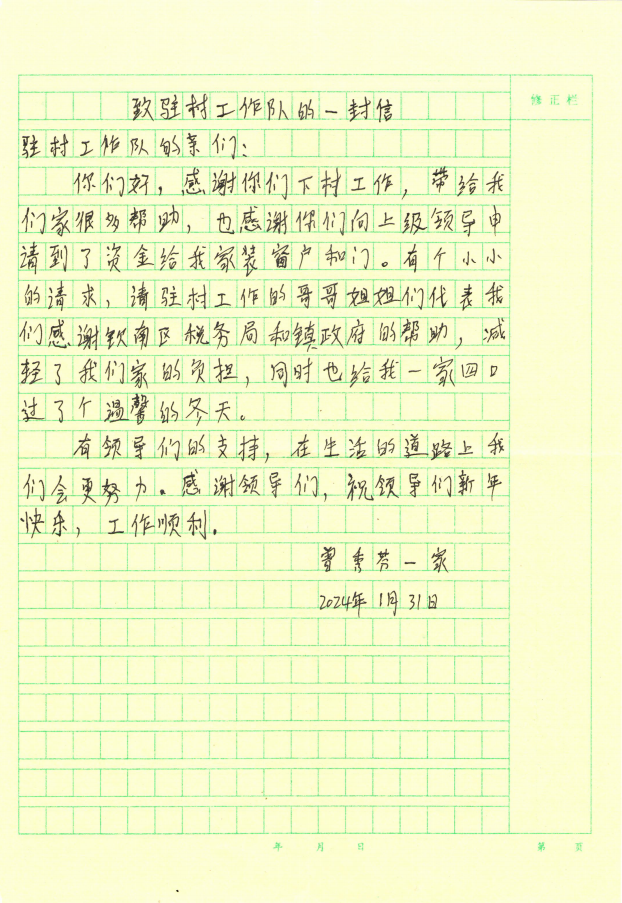 修正栏
致驻村工作队的一封信
驻村工作队的亲们：
你们好，感谢你们下村工作，带给我
们家很多帮助，也感谢你们向上级领导申
请到了资金给我家装窗户和门。有个小小
的请求，请驻村工作的哥哥姐姐们代表我
们感谢钦南区税务局和镇政府的帮助，减
轻了我们家的负担，同时也给我一家四口
过了个温馨的冬天。
有领导们的支持，在生活的道路上我
们会更努力。感谢领导们，祝领导们新年
快乐，工作顺利。
曾秀芬一家
2024年1月31日
年 月 日
第 页